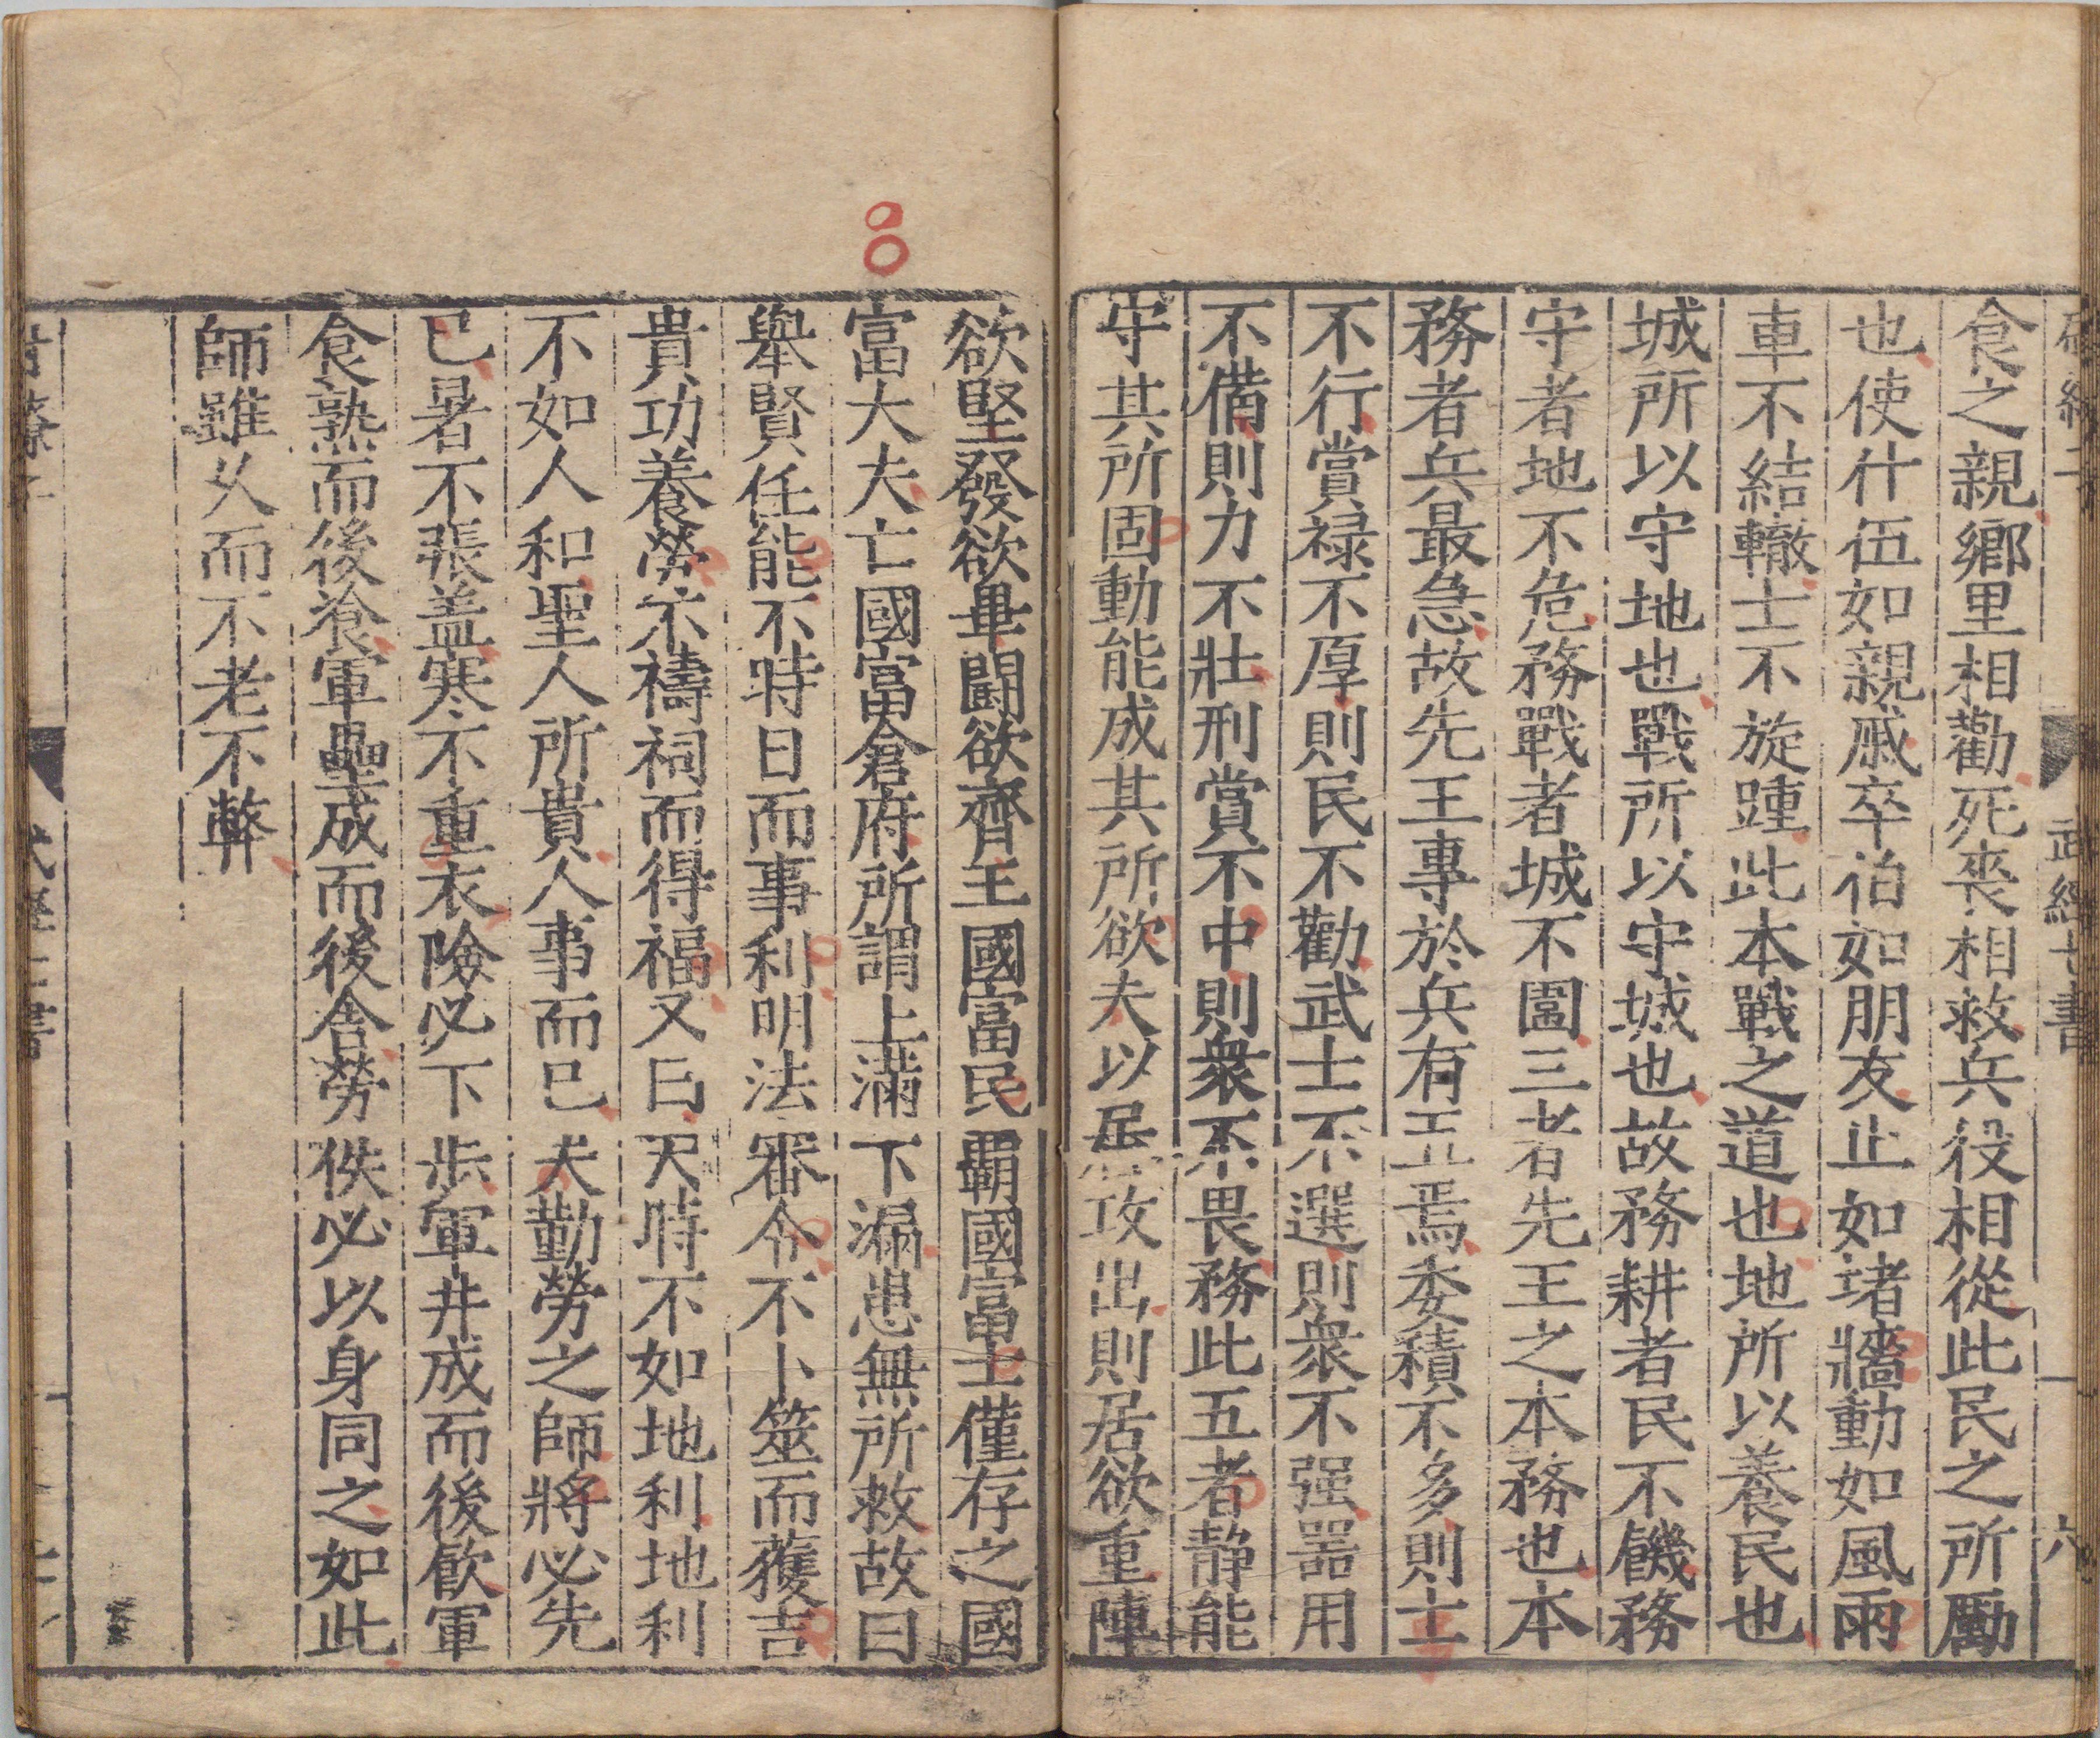 武經七書 六
食之親鄉里相勸死喪相救兵役相從此民之所勵
也使什伍如親戚卒伯如朋友止如堵牆動如風雨
車不結轍士不旋踵此本戰之道也地所以養民也
城所以守地也戰所以守城也故務耕者民不饑務
守者地不危務戰者城不圍三者先王之本務也本
務者兵最急故先王專於兵有五焉委積不多則士
不行賞禄不厚則民不勸武士不選則衆不强噐用
不備則力不壯刑賞不中則衆不畏務此五者静能
守其所固動能成其所欲夫以居攻出則居欲重陣
欲堅發欲畢鬪欲齊王國富民覇國富士僅存之國
富大夫亡國富倉府所謂上滿下漏患無所救故曰
舉賢任能不時日而事利明法審令不卜筮而獲吉
貴功養勞不禱祠而得福又曰天時不如地利地利
不如人和聖人所貴人事而已夫勤勞之師將必先
已暑不張盖寒不重衣險必下歩軍井成而後飮軍
食熟而後飱軍壘成而後舍勞佚必以身同之如此
師雖乆而不老不弊